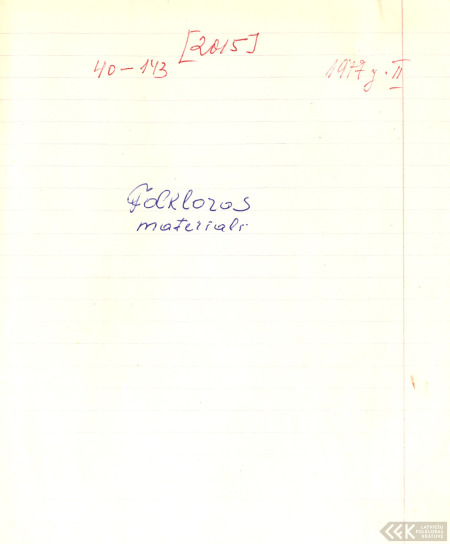 [2015]
40-143
1977 g. II
Folkloras
materiali
LATVIEŠU
FOLKLORAS
KRĀTUVE